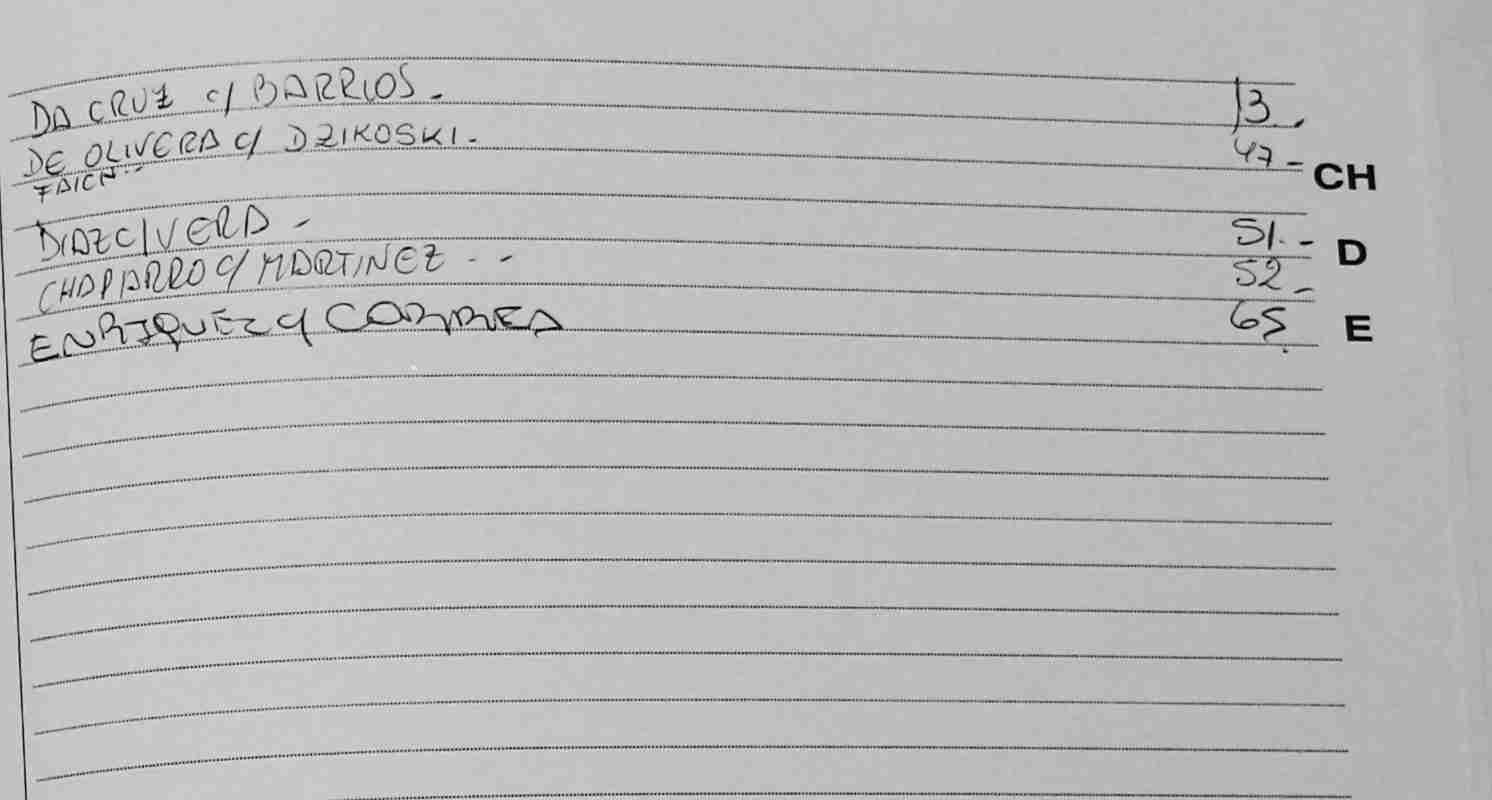 DA CRUZ c/ BARRIOS. 13.
DE OLIVERA c/ DZIKOSKI. 47-
CH
DIAZ C/ VERA - 51.-
D
CHAPARRO c/ MARTINEZ .- 52_
ENRIQUEZ c/ CORREA 65.
E